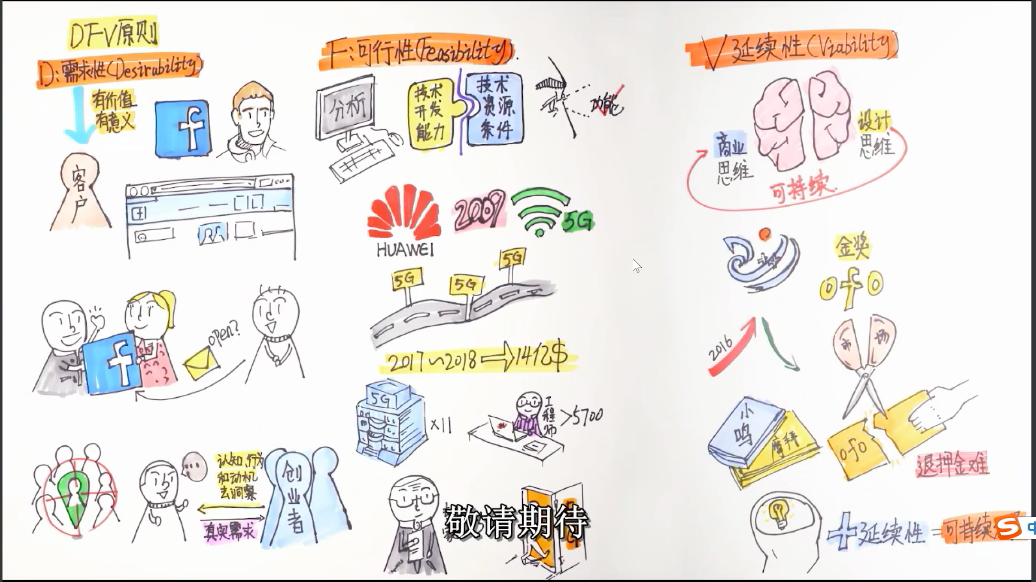 DFV原则
D:需求性(Desirability)
有价值
有意义
f
客户
f
open?
认知,行为
和动机
去洞察
真实需求
创业者
F:可行性(Feasibility).
分析
技术
开发
能力
技术
资源
条件
功能
HUAWEI
2009
5G
5G
5G
5G
2017~2018→1412$
5G
x11
工程师
>5700
敬请期待
V延续性(Viability)
商业
思维
设计
思维
可持续
金奖
ofo
2016
市场
小鸣
摩拜
ofo
退押金难
+延续性=可持续